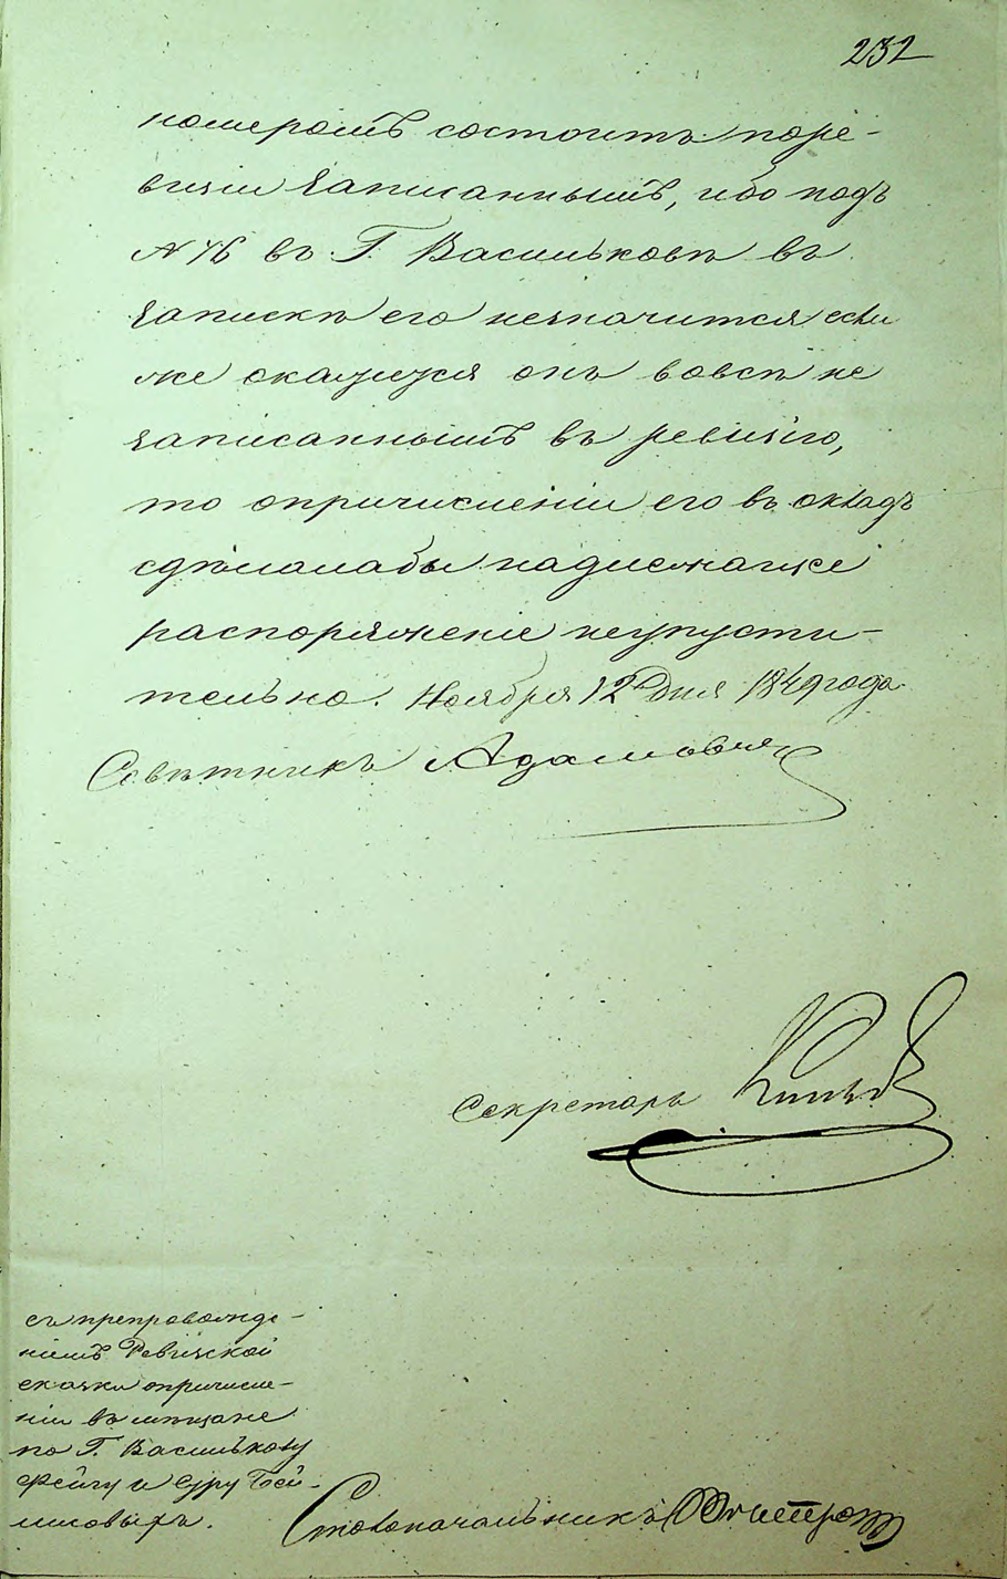 232
номеромъ состоитъ поре-
визіи записаннымъ, ибо подъ
N 76 въ Г. Васильковѣ въ
запискѣ его незначится если
же окажется онъ вовсѣ не
записаннымъ въ ревизію,
то опричисленіи его въ окладъ
сдѣлалабы надлежащее
распоряженіе неупусти-
тельно. Ноября 12 дня 1849 года.
Совѣтникъ Адамовичъ
Секретарь
съ препровожде-
ніемъ Ревизской
сказки опричисле-
ніи въ мѣщане
по Г. Василькову
Фейгу и Суру Бей-
лиовыхъ.
Столоначальникъ